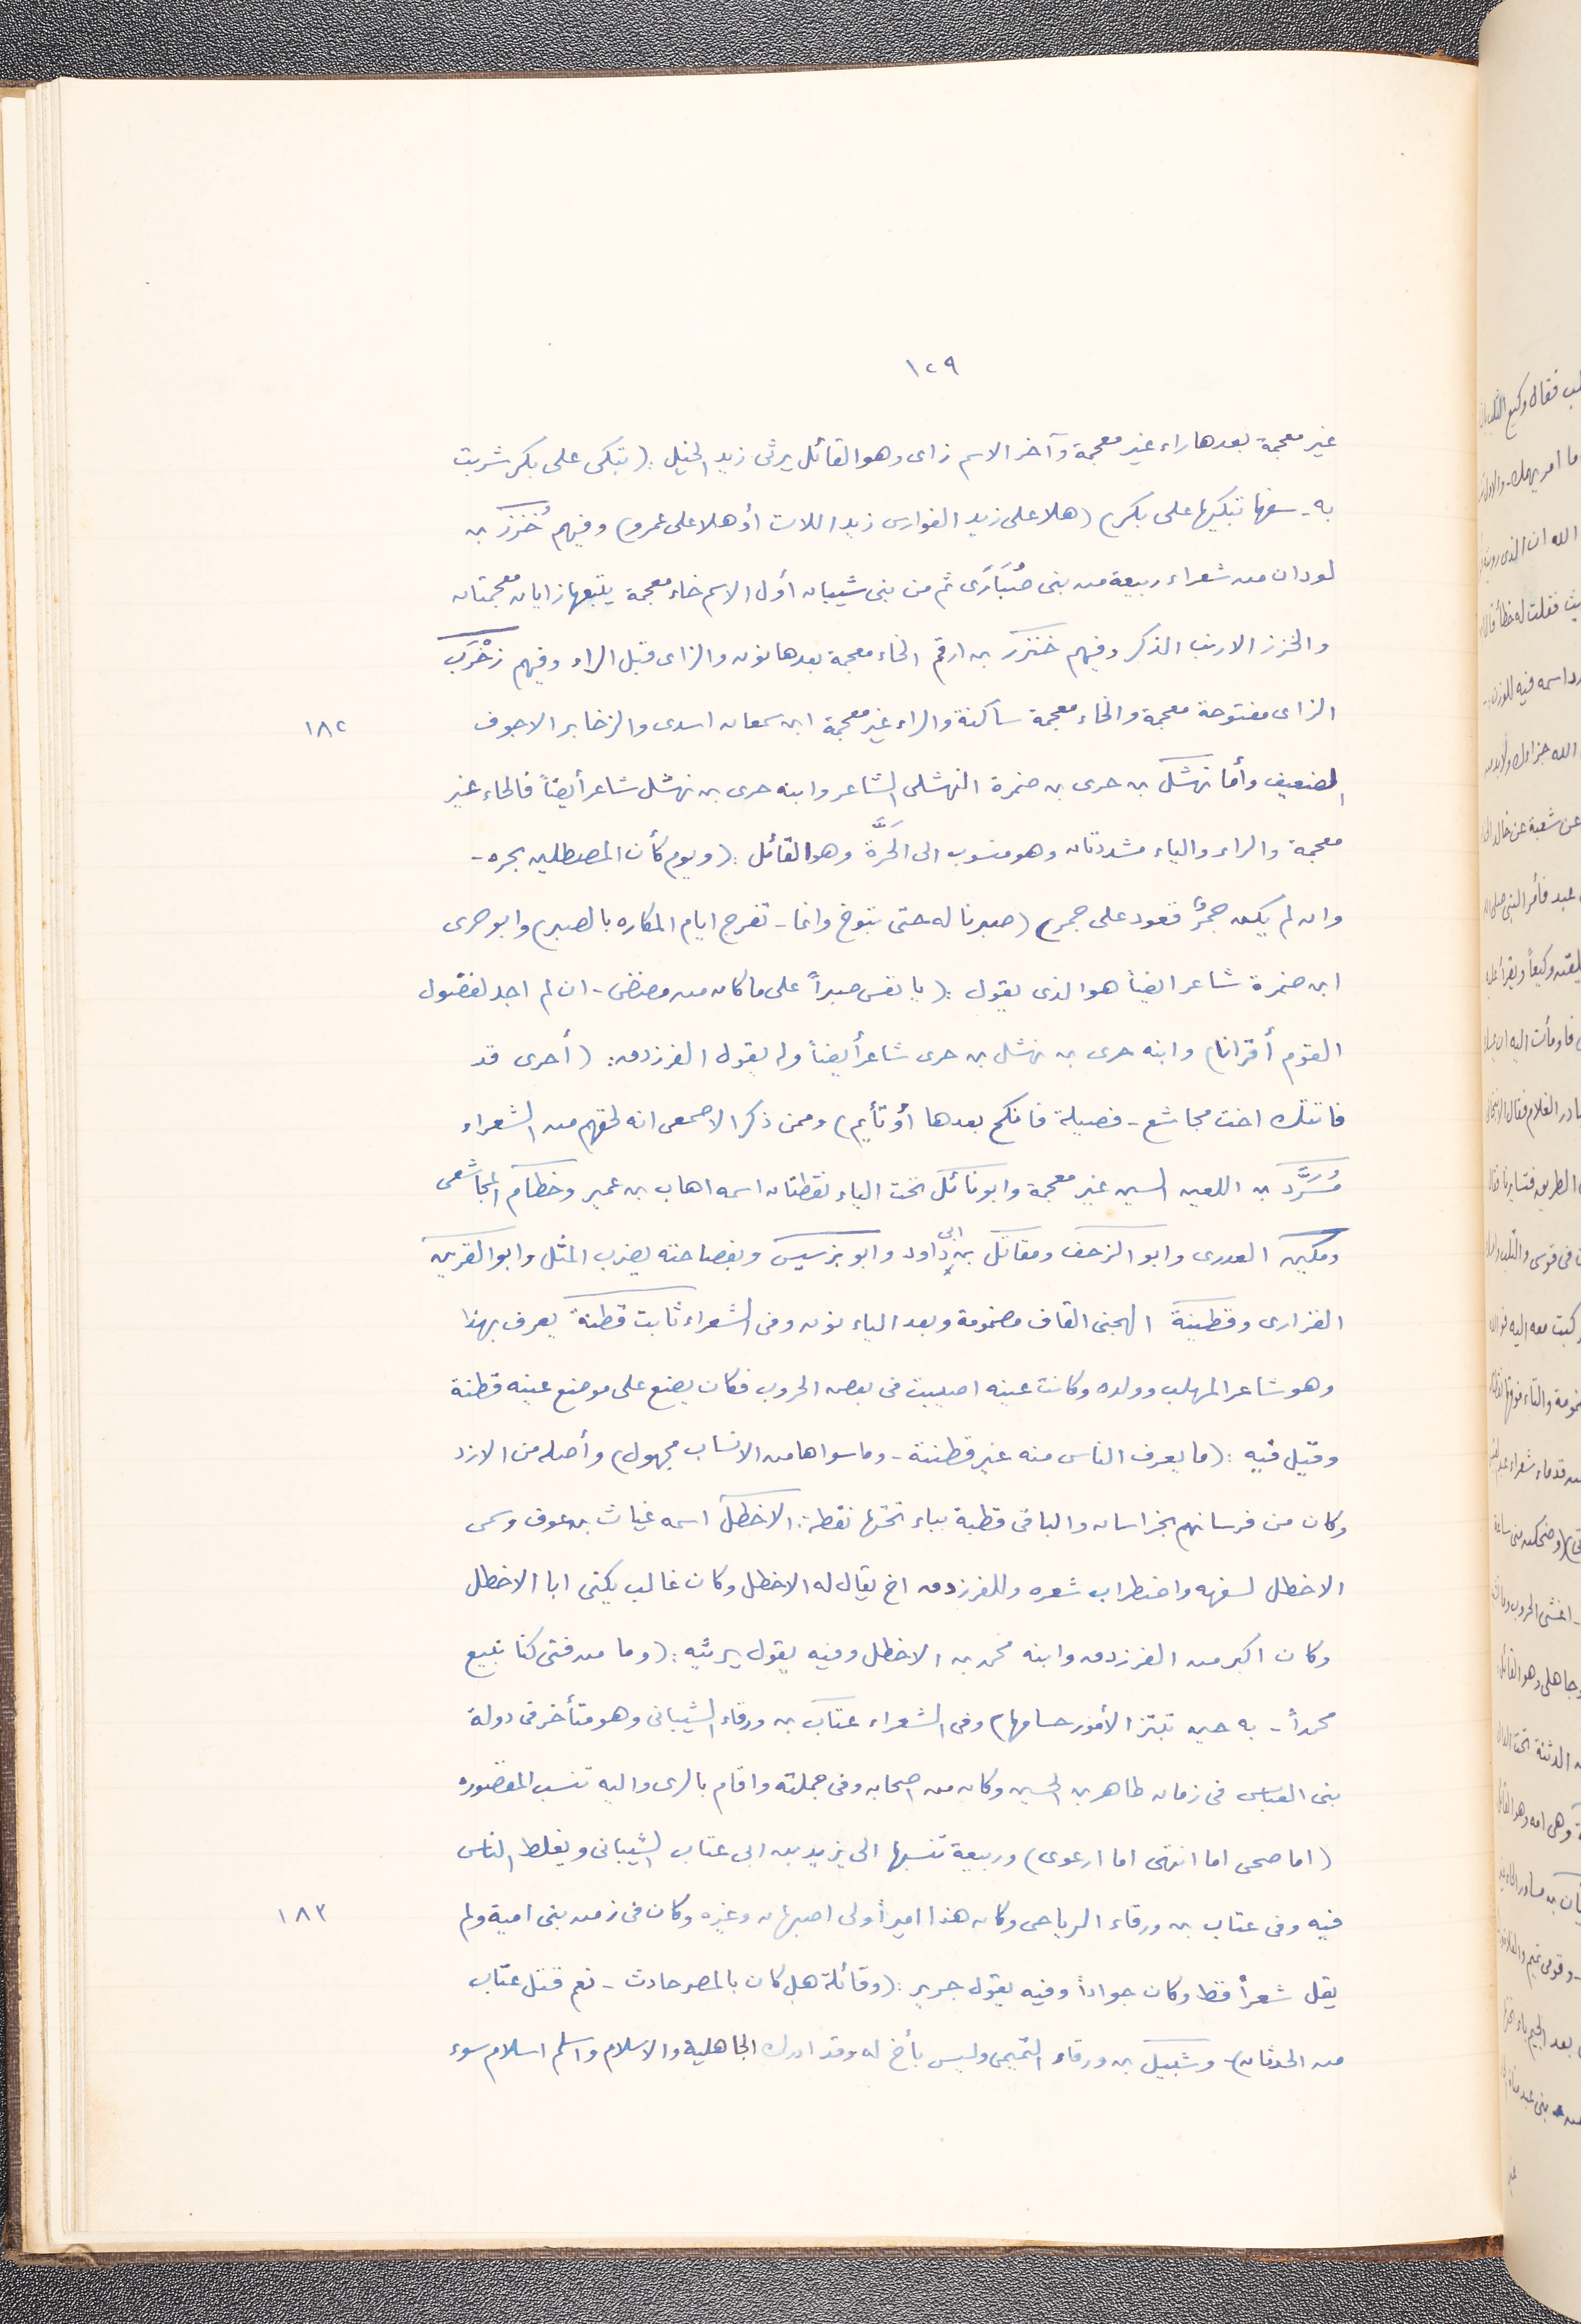 ١٢٩
غير معجمة بعدها راء غير معجمة وآخر الاسم زاى وهو القائل يرثى زيد الخيل : (تبكى على بكر شربت
به - سفها تبكيها على بكر) (هلا على زيد الفوارس زيد اللات أو هلا على عمرو) وفيهم خُزز بن
لوذان من شعراء ربيعة من بنى ضُبَارَى ثم من بنى شيبان أول الاسم خاء معجمة يتبعها زايان معجمتان
والخزز الارنب الذكر وفيهم خنزر بن ارقم الخاء معجمة بعدها نون والزاى قبل الراء وفيهم زَخْرَب
الزاى مفتوحة معجمة والخاء معجمة ساكنة والراء غير معجمة ابن سمعان اسدى والزخابر الاجوف
١٨٢
الضعيف وأما نهشل بن حرى بن ضمرة النهشلى الشاعر وابنه حرى بن نهشل شاعر أيضاً فالحاء غير
معجمة والراء والياء مشددتان وهو منسوب الى الحَرَّة وهو القائل : (ويوم كأن المصطلين بحره -
وان لم يكن جمرٌ قعود على جمر) (صبرنا له حتى تبوخ وانما - تفرج ايام المكاره بالصبر) وابو حرى
ابن ضمرة شاعر ايضاً هو الذى يقول : (يا نفس صبراً على ما كان من مضض - ان لم اجد لفضول
القوم أقرانا) وابنه حرى بن نهشل بن حرى شاعر أيضاً وله يقول الفرزدق : (أحرى قد
فاتتك اخت مجاشع - فصيلة فانكح بعدها أو تأيم) وممن ذكر الاصمعى انه لحقهم من الشعراء
مُسَرَّد بن اللعين السين غير معجمة وابو نائل تحت الياء نقطتان اسمه اهاب بن عمير وخطام المجاشعى
ودكين العدرى وابو الزحف ومقاتل بن ابى داود وابو بزسيس وبفصاحته يضرب المثل وابو القرين
الفزارى وقطينة الهجنى القاف مضمومة وبعد الياء نون وفى الشعراء ثابت قطنة يعرف بهذا
وهو شاعر المهلب وولده وكانت عينه اصيبت فى بعض الحروب فكان يضع على موضع عينه قطنة
وقيل فيه : (ما يعرف الناس منه غير قطنته - وما سواها من الانساب مجهول) وأصله من الازد
وكان من فرسانهم بخراسان والباقى قطبة بباء تحتها نقطة : الاخطل اسمه غياث بن عوف وسمى
الاخطل لسفهه واضطراب شعره وللفرزدق اخ يقال له الاخطل وكان غالب يكنى ابا الاخطل
وكان اكبر من الفرزدق وابنه محمد بن الاخطل وفيه يقول يرثيه : (وما من فتى كنا نبيع
محمداً - به حين تبتز الأمور حسامها) وفى الشعراء عتاب بن ورقاء الشيبانى وهو متأخر فى دولة
بنى العباس فى زمان طاهر بن الحسين وكان من اصحابه وفى جملته واقام بالرى واليه تنسب المقصوره
(اما صحى اما انتهى اما ارعوى) وربيعة تنسبها الى يزيد بن ابى عتاب الشيبانى ويغلط الناس
فيه وفى عتاب بن ورقاء الرياحى وكان هذا اميراً ولى اصبهان وغيره وكان فى زمن بنى امية ولم
١٨٣
يقل شعراً قط وكان جواداً وفيه يقول جرير : (وقائلة هل كان بالمصر حادث - نعم قتل عتاب
من الحدثان) وشبيل بن ورقاء التميمى وليس بأخ له وقد ادرك الجاهلية والاسلام واسلم اسلام سوء